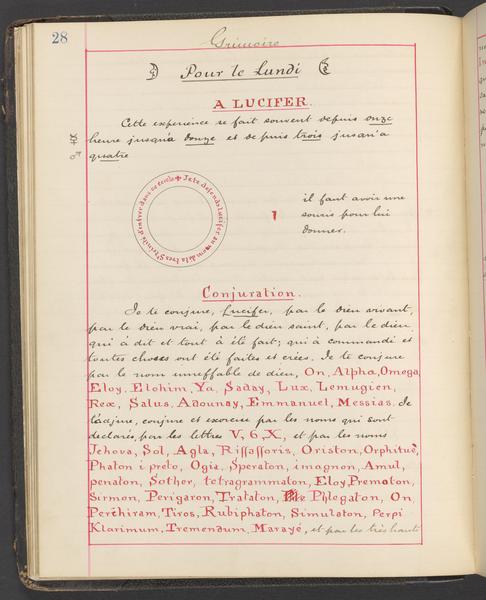 28
Grimoire
Pour le Lundi
A LUCIFER.
Cette experience se fait souvent depuis onze
heure jusqu'a douze et depuis trois jusqu'a
quatre
✠ Je te defends Lucifer au nom de la tres Ste trinité d'entrer dans ce cercle
il faut avoir une
souris pour lui
donner.
Conjuration.
Je te conjure, Lucifer, par le dieu vivant,
par le dieu vrai, par le dieu saint, par le dieu
qui à dit et tout à été fait; qui à commandé et
toutes choses ont été faites et crées. Je te conjure
par le nom inneffable de dieu, On, Alpha, Omega
Eloy, Elohim, Ya, Saday, Lux, Lemugien,
Rex, Salus, Adounay, Emmanuel, Messias. Je
t'adjure, conjure et exorcise par les noms qui sont
declarés, par les lettres V, 6, X, et par les noms
Jehova, Sol, Agla, Riffasforis, Oriston, Orphitue,
Phaton i preto, Ogia, Speraton, imagnon, Amul,
penaton, Sother, tetragrammaton, Eloy, Premoton,
Sirmon, Perigaron, Trataton, Phlegaton, On
Perchiram, Tiros, Rubiphaton, Simulaton, Perpi
Klarimum, Tremendum, Marayé, et par les très hauts